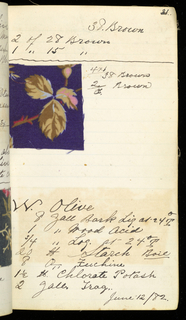 21.
38. Brown
2 of 28 Brown
1 " 15 "
38 Browns
2 Brown
W. Olive
8 Gall Bark Liq at 24º
1 " Wood Acid
1/4 " Log at 24º
2 1/2 # Starch Bose
8 oz Fuchine
1 1/2 # Chlorate Potash
2 Galls Trag.
June 12/82.